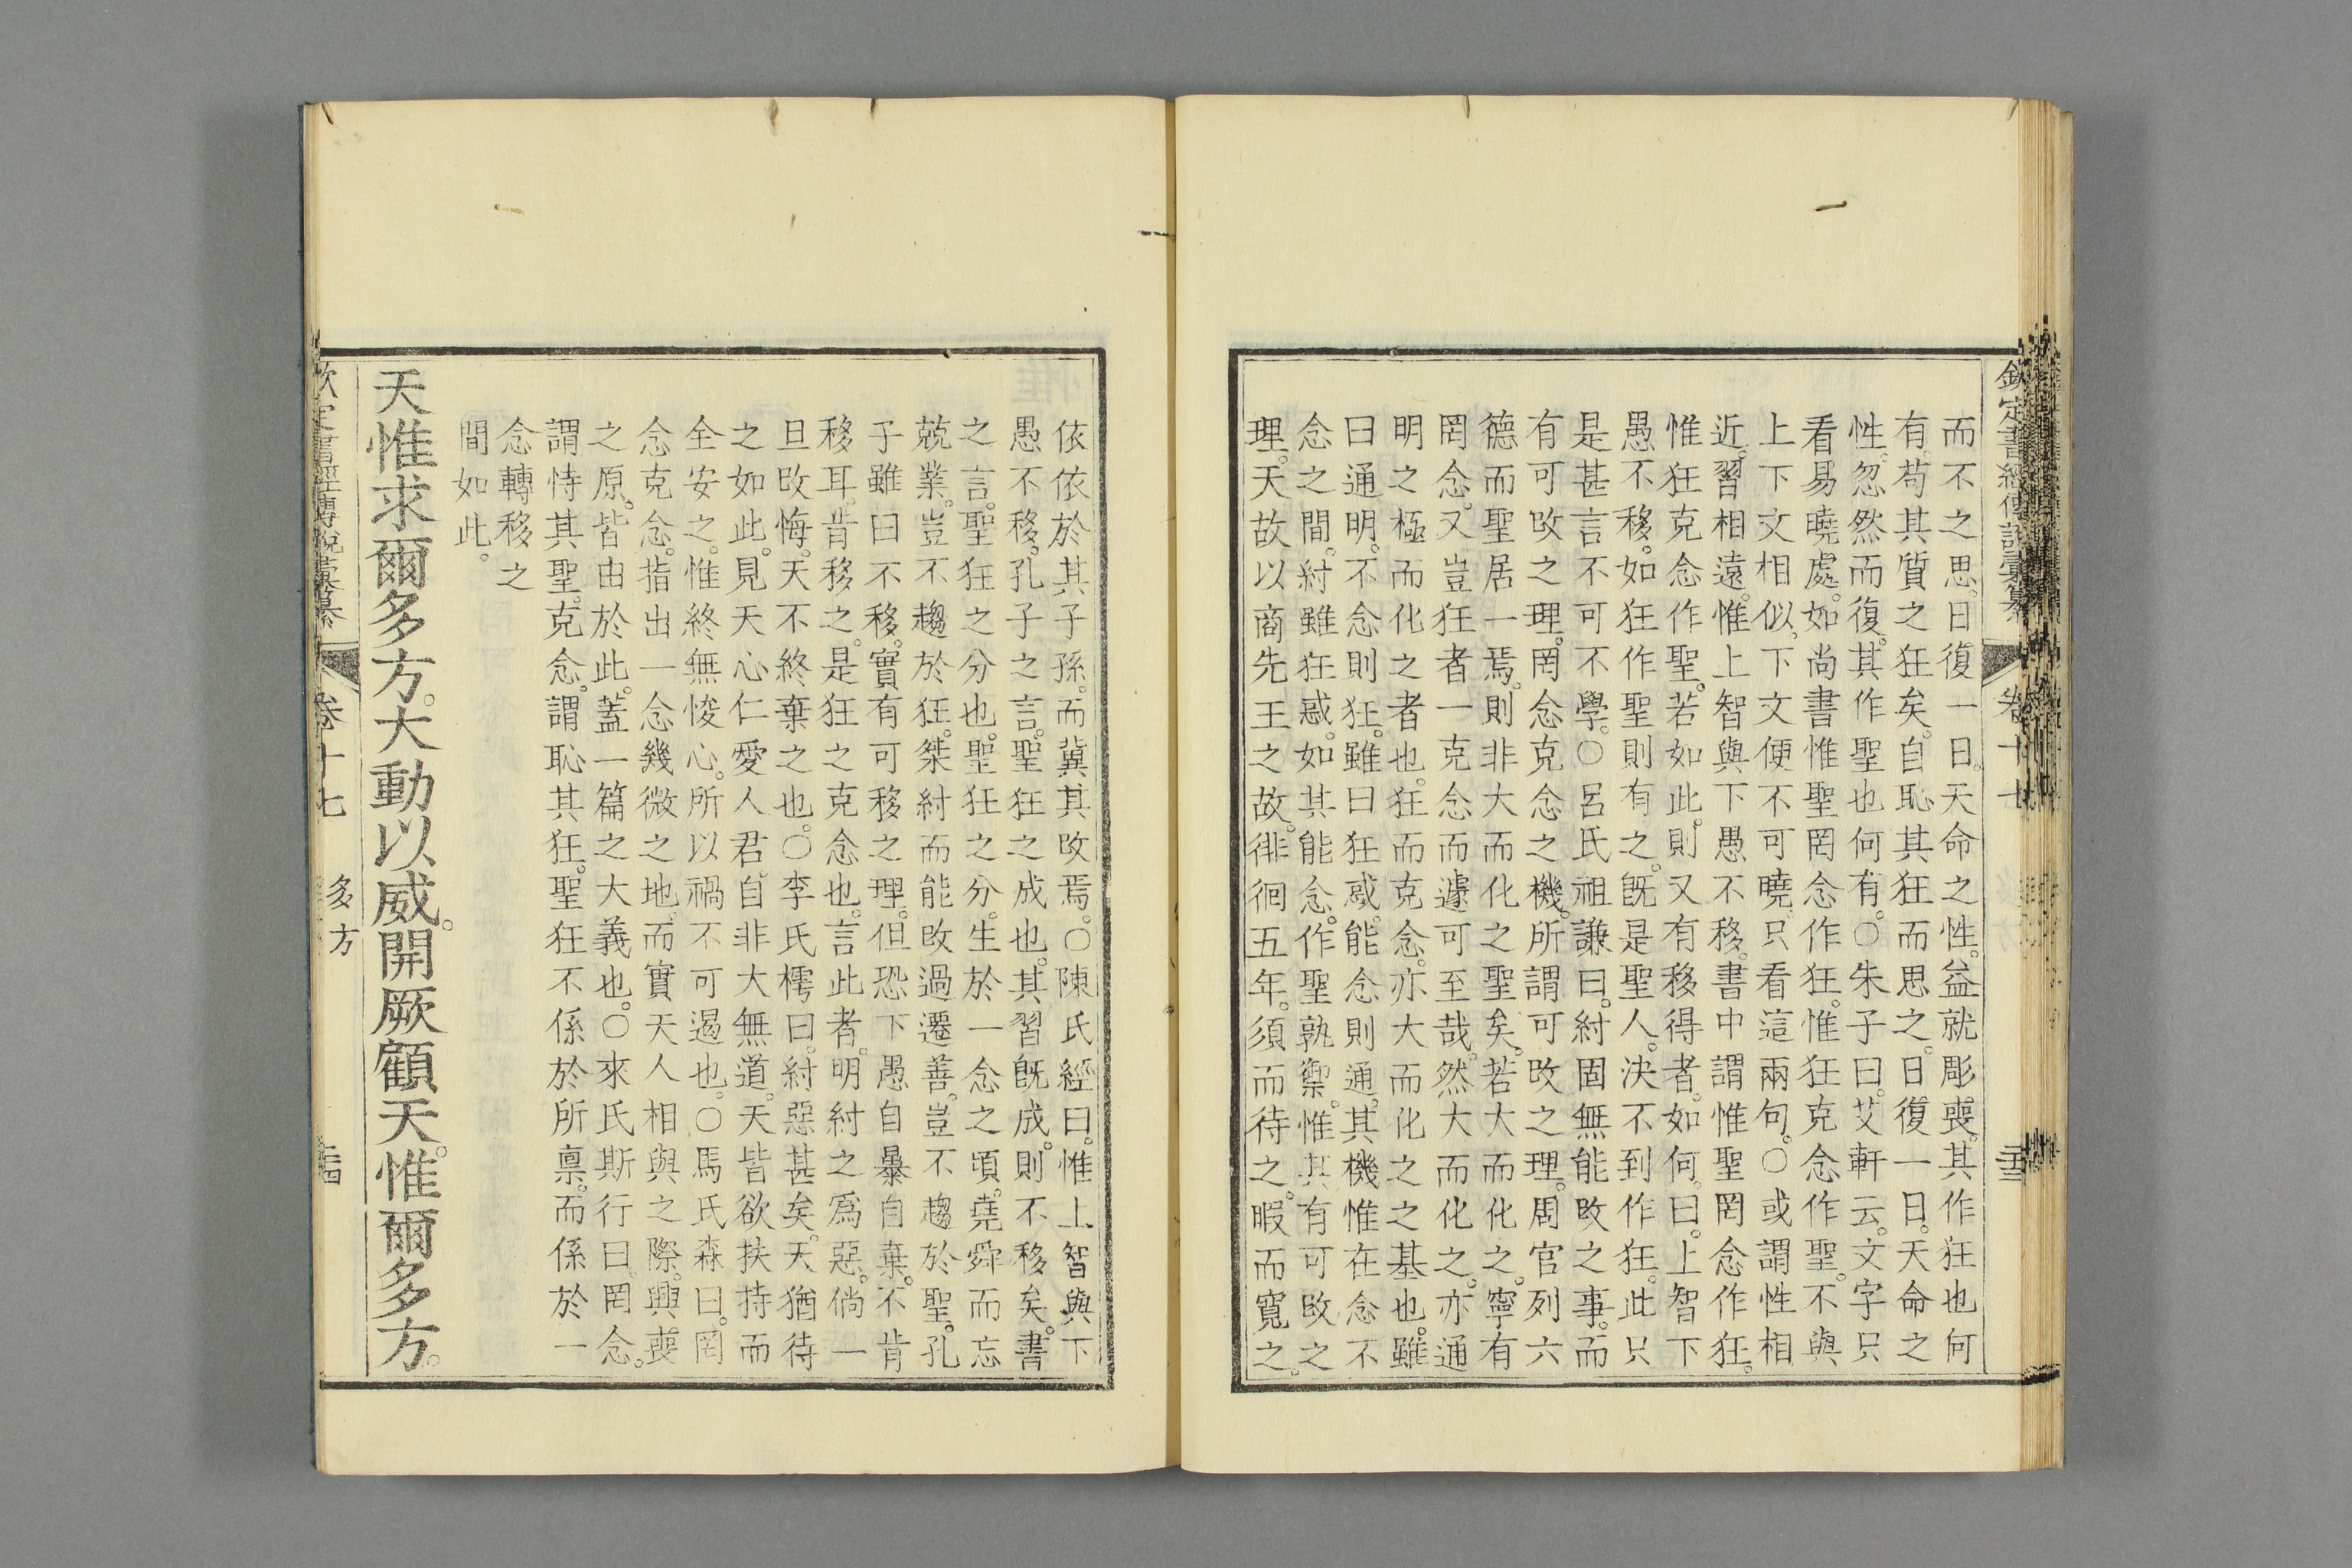 欽定書經傳說彙纂 卷十七 二十三
而不之思。日復一日。天命之性。益就彫喪。其作狂也何
有。苟其質之狂矣。自恥其狂而思之。日復一日。天命之
性。忽然而復。其作聖也何有。○朱子曰。艾軒云。文字只
看易曉處。如尚書惟聖罔念作狂。惟狂克念作聖。不與
上下文相似。下文便不可曉。只看這兩句。○或謂性相
近。習相遠。惟上智與下愚不移。書中謂惟聖罔念作狂。
惟狂克念作聖。若如此。則又有移得者。如何。曰。上智下
愚不移。如狂作聖則有之。旣是聖人。決不到作狂。此只
是甚言不可不學。○呂氏祖謙曰。紂固無能改之事。而
有可改之理。罔念克念之機。所謂可改之理。周官列六
德而聖居一焉。則非大而化之聖矣。若大而化之。寧有
罔念。又豈狂者一克念而遽可至哉。然大而化之。亦通
明之極而化之者也。狂而克念。亦大而化之之基也。雖
曰通明。不念則狂。雖曰狂惑。能念則通。其機惟在念不
念之間。紂雖狂惑。如其能念。作聖孰禦。惟其有可改之
理。天故以商先王之故。徘徊五年。須而待之。暇而寬之。
依依於其子孫。而冀其改焉。○陳氏經曰。惟上智與下
愚不移。孔子之言。聖狂之成也。其習旣成。則不移矣。書
之言。聖狂之分也。聖狂之分。生於一念之頃。堯舜而忘
兢業。豈不趨於狂。桀紂而能改過遷善。豈不趨於聖。孔
子雖曰不移。實有可移之理。但恐下愚自暴自棄。不肯
移耳。肯移之。是狂之克念也。言此者。明紂之爲惡。倘一
旦改悔。天不終棄之也。○李氏樗曰。紂惡甚矣。天猶待
之如此。見天心仁愛人君。自非大無道。天皆欲扶持而
全安之。惟終無悛心。所以禍不可遏也。○馬氏森曰。罔
念克念。指出一念幾微之地。而實天人相與之際。興喪
之原。皆由於此。蓋一篇之大義也。○來氏斯行曰。罔念。
謂恃其聖。克念。謂恥其狂。聖狂不係於所稟。而係於一
念轉移之
間如此。
天惟求爾多方。大動以威。開厥顧天。惟爾多方。
欽定書經傳說彙纂 卷十七 多方 二十四